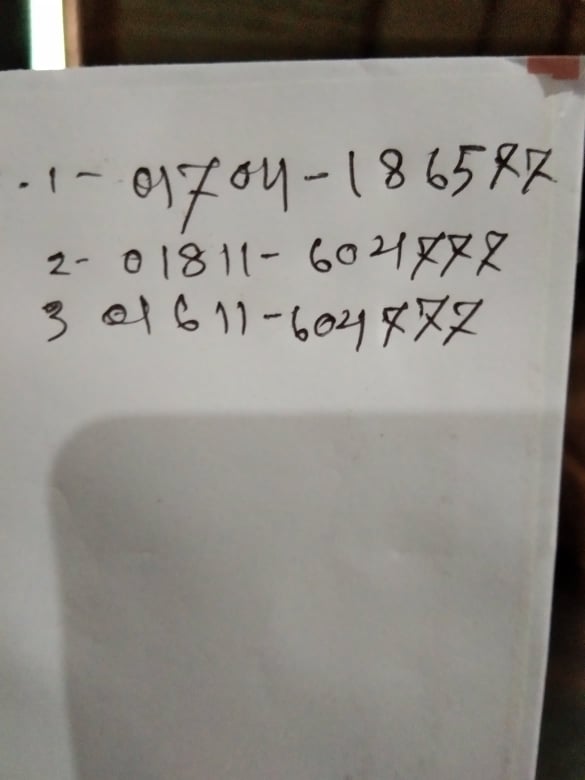 1- 01704-186577
2- 01811-604777
3 01611-604777